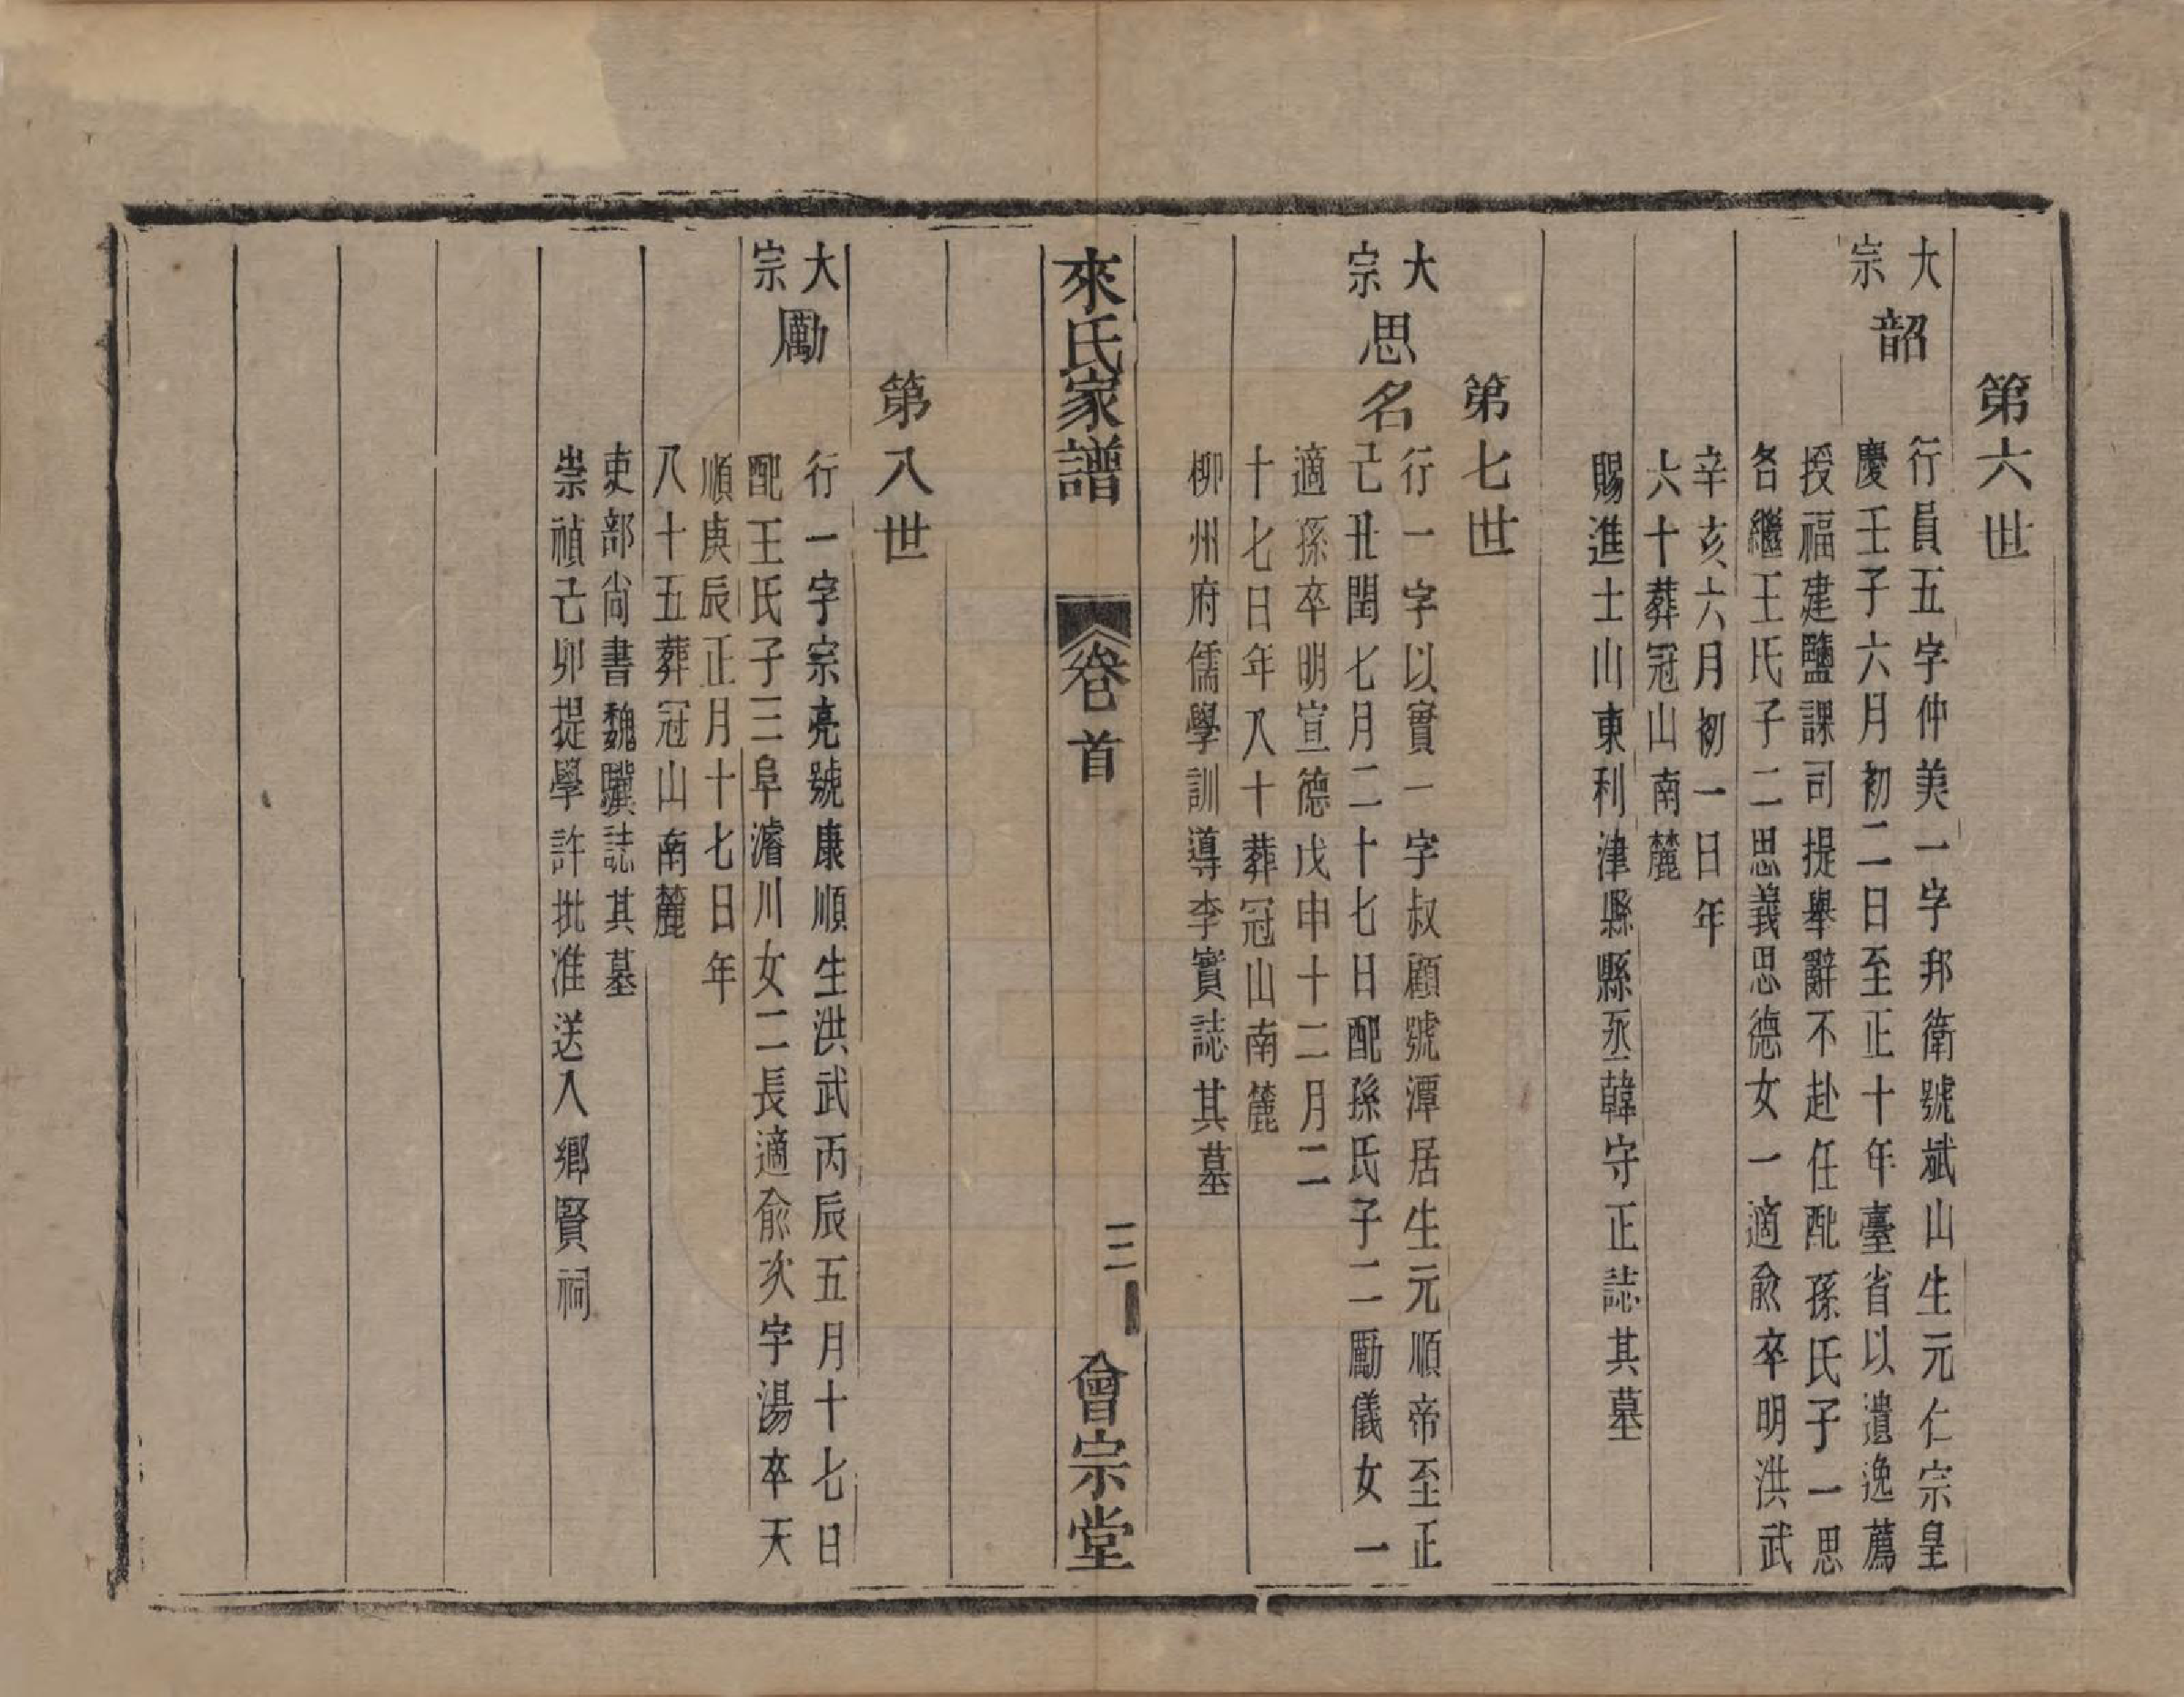 第六世
大宗
韶
行員五字仲美一字邦衛號斌山生元仁宗皇
慶壬子六月初二日至正十年臺省以遺逸薦
授福建鹽課司提舉辭不赴任配孫氏子一思
名繼王氏子二思義思德女一適俞卒明洪武
辛亥六月初一日年
六十葬冠山南麓
賜進士山東利津縣縣丞韓守正誌其墓
第七世
大宗
思名
行一字以實一字叔顧號潭居生元順帝至正
己丑閏七月二十七日配孫氏子二勵儀女一
適孫卒明宣德戊申十二月二
十七日年八十葬冠山南麓
柳州府儒學訓導李實誌其墓
來氏家譜
卷首
三
會宗堂
第八世
大宗
勵
行一字宗亮號康順生洪武丙辰五月十七日
配王氏子三阜濬川女二長適俞次字湯卒天
順庚辰正月十七日年
八十五葬冠山南麓
吏部尙書魏驥誌其墓
崇禎己卯提學許批准送入鄉賢祠